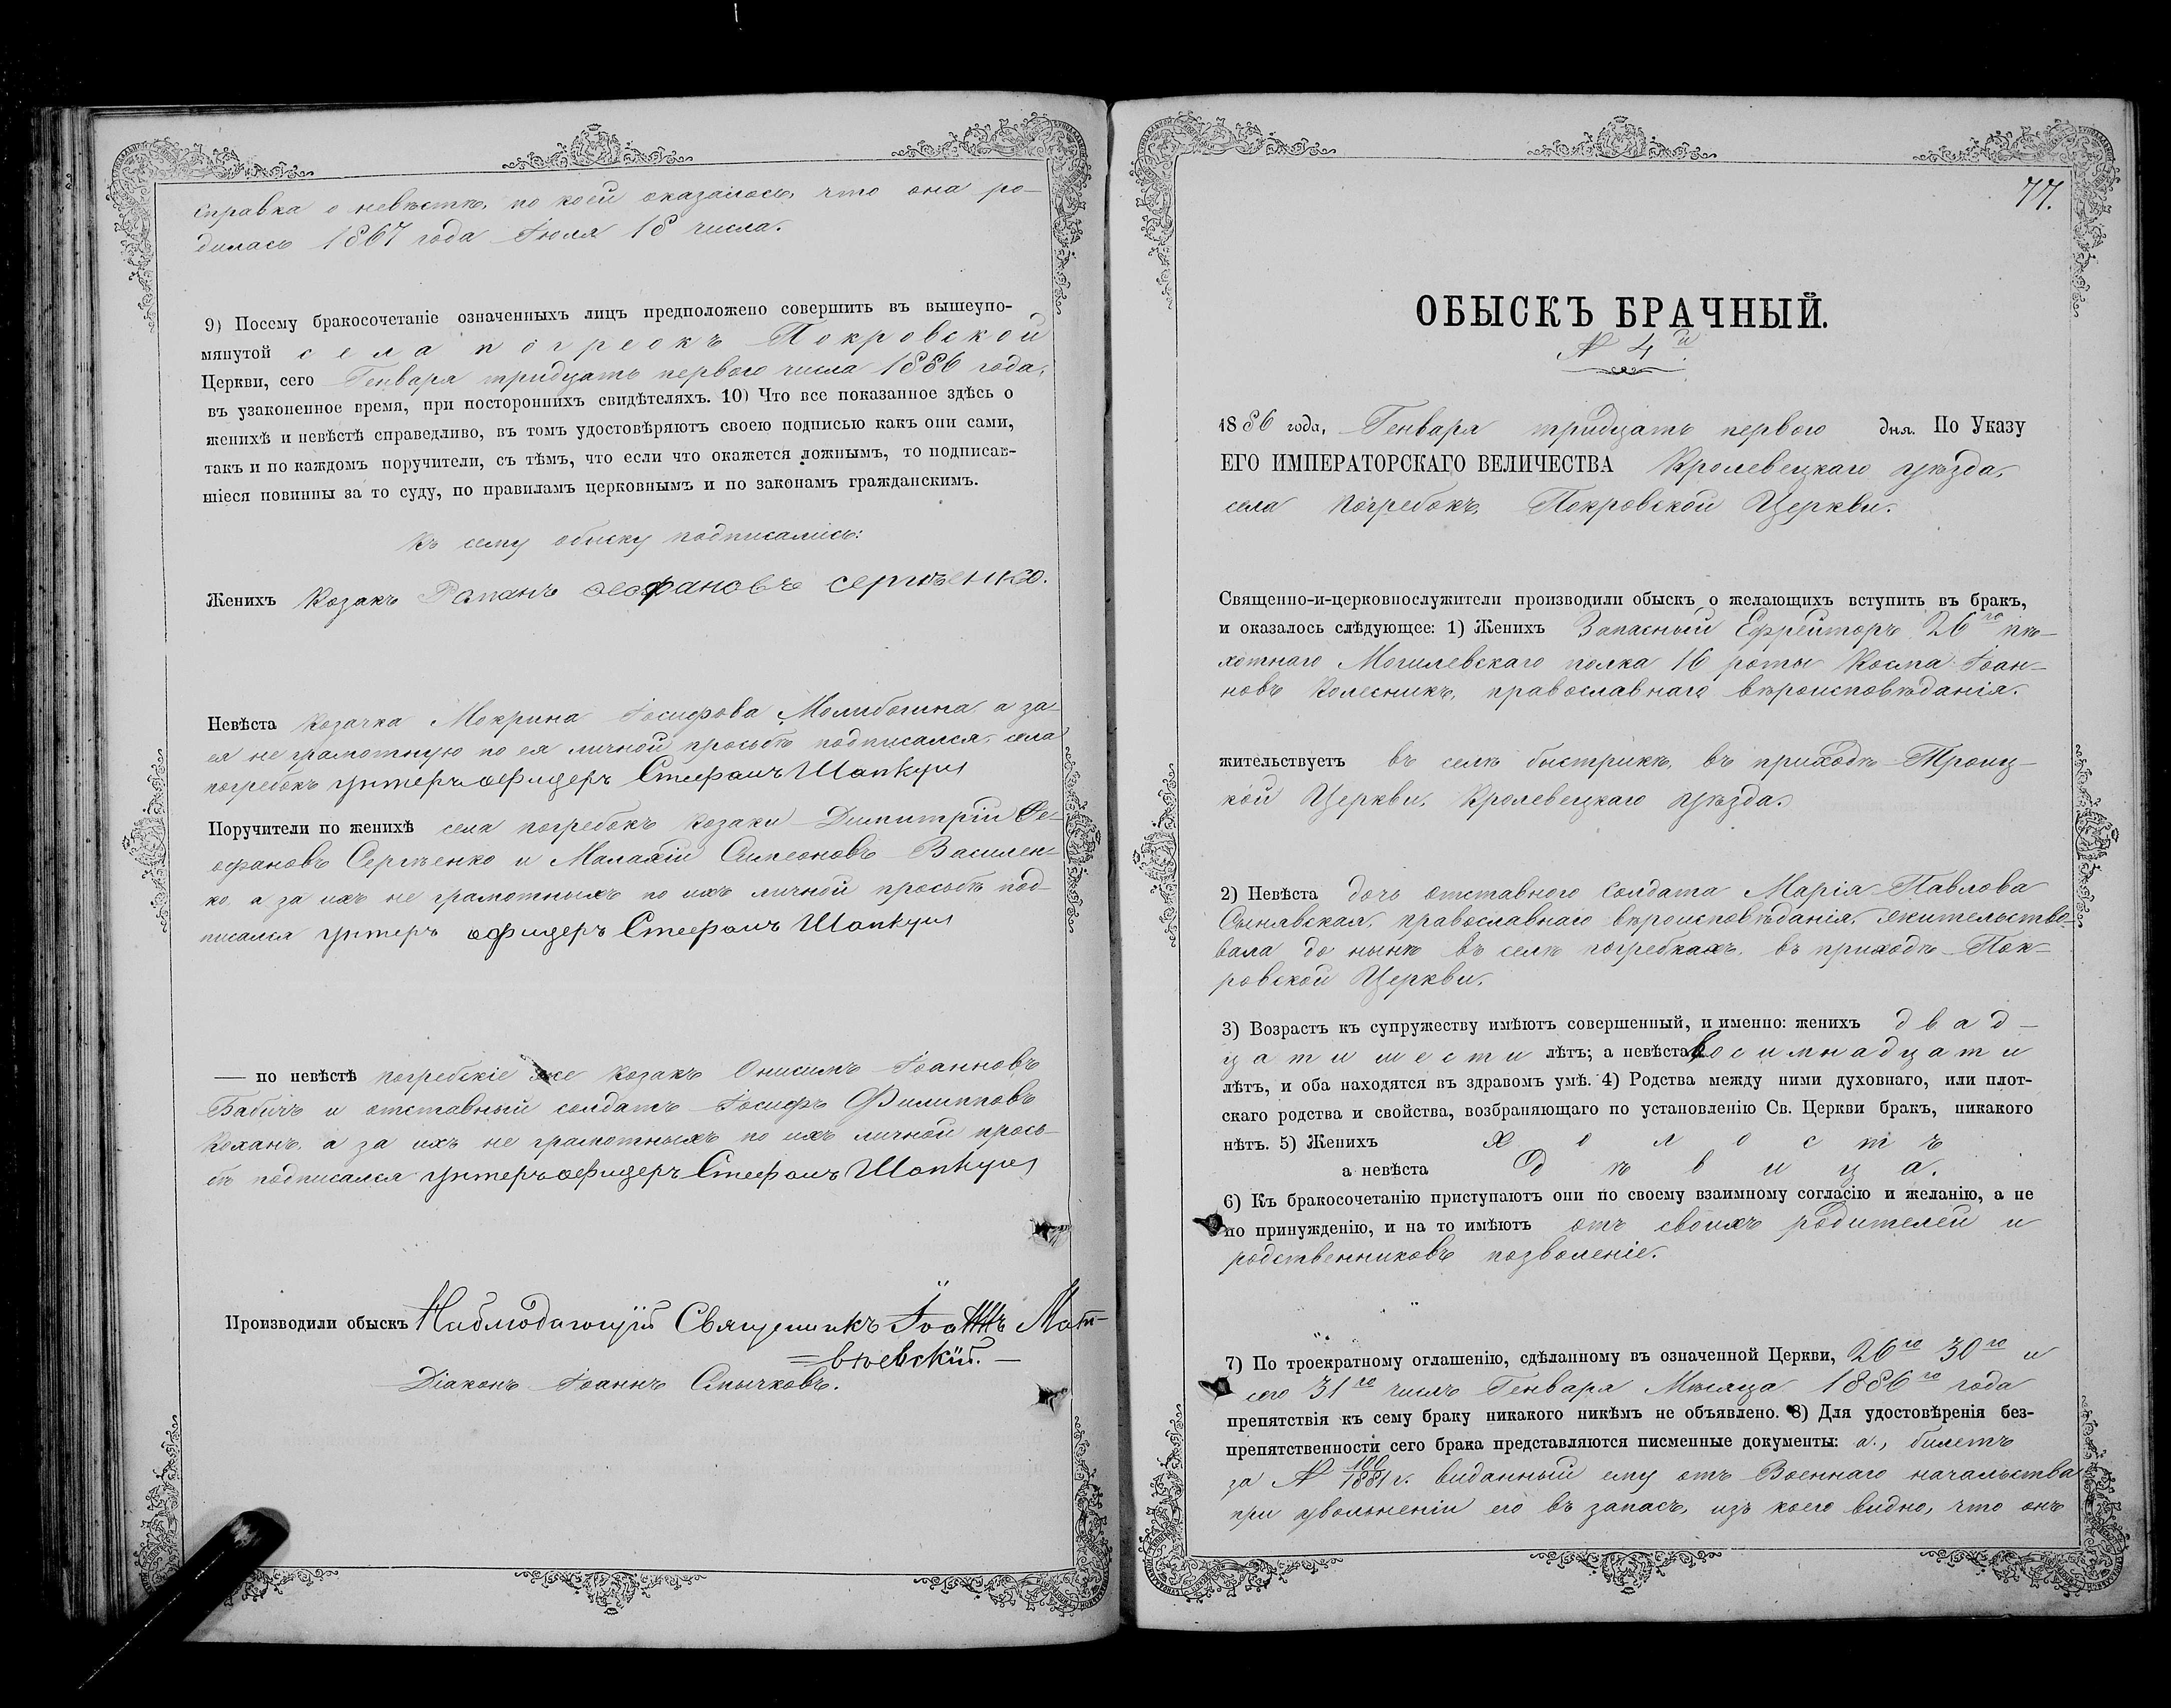 справка о невѣстѣ, по коей оказалось, что она ро-
дилась 1867 года Іюля 18 числа.
9) Посему бракосочетаніе означенныхъ лицъ предположено совершить въ вышеупо-
мянутой села погребокъ Покровской
Церкви, сего Генваря тридцать первого числа 1886 года,
въ узаконенное время, при постороннихъ свидѣтеляхъ. 10) Что все показанное здѣсь о
женихѣ и невѣстѣ справедливо, въ томъ удостовѣряютъ своею подписью какъ они сами,
такъ и по каждомъ поручители, съ тѣмъ, что если что окажется ложнымъ, то подписав-
шіеся повинны за то суду, по правиламъ церковнымъ и по законамъ гражданскимъ.
Къ сему обыску подписались:
Женихъ Козакъ Романъ Феофановъ Сергѣенко.
Невѣста Козачка Мокрина Іосифова Молибогина а за
ея не грамотную по ея личной просьбѣ подписался, села
погребокъ унтеръ офицеръ Стефанъ Шапкун
Поручители по женихѣ села погребокъ Козаки Димитрій Фе-
офановъ Сергѣенко и Малахій Симеоновъ Василен-
ко, а за ихъ не грамотныхъ по ихъ личной просьбѣ под-
писался унтеръ офицеръ Стефанъ Шапкун
— по невѣстѣ погребскіе же Козакъ Онисимъ Іоанновъ
Бабичъ и отставный солдатъ Іосифъ Филипповъ
Коханъ, а за ихъ не грамотныхъ по ихъ личной прось-
бѣ подписался унтеръ офицеръ Стефанъ Шапкун
Производили обыскъ Наблюдающій Священникъ Іоаннъ Мат-
=вѣевскій. —
Діаконъ Іоаннъ Смычковъ.
77.
ОБЫСКЪ БРАЧНЫЙ.
№ 4й.
1886 года, Генваря тридцать первого дня. По Указу
ЕГО ИМПЕРАТОРСКАГО ВЕЛИЧЕСТВА Кролевецкаго уѣзда,
села Погребокъ, Покровской Церкви.
Священно-и-церковнослужители производили обыскъ о желающихъ вступить въ бракъ,
и оказалось слѣдующее: 1) Женихъ Запасный Ефрейторъ 26го пѣ-
хотнаго Могилевскаго полка 16 роты Косма Іоан-
новъ Колесникъ, православнаго вѣроисповѣданія.
жительствуетъ въ селѣ быстрикѣ, въ приходѣ Троиц-
кой Церкви, Кролевецкаго уѣзда.
2) Невѣста дочь отставного Солдата Марія Павлова
Сынявская, православнаго вѣроисповѣданія, жительство-
вала до нынѣ въ селѣ погребкахъ, въ приходѣ Пок-
ровской Церкви.
3) Возрастъ къ супружеству имѣютъ совершенный, и именно: женихъ двад-
цати шести лѣтъ; а невѣста восимнадцати
лѣтъ, и оба находятся въ здравомъ умѣ. 4) Родства между ними духовнаго, или плот-
скаго родства и свойства, возбраняющаго по установленію Св. Церкви бракъ, никакого
нѣтъ. 5) Женихъ холостъ
а невѣста дѣвица.
6) Къ бракосочетанію приступаютъ они по своему взаимному согласію и желанію, а не
по принужденію, и на то имѣютъ отъ своихъ родителей и
родственниковъ позволеніе.
7) По троекратному оглашенію, сдѣланному въ означенной Церкви, 26го 30го и
сего 31го числъ Генваря Мѣсяца 1886го года
препятствія къ сему браку никакого никѣмъ не объявлено. 8) Для удостовѣренія без-
препятственности сего брака представляются писменные документы: а., билетъ
за № 100/1881 г. виданный ему отъ Военнаго начальства
при увольненіи его въ запасъ, изъ коего видно, что онъ